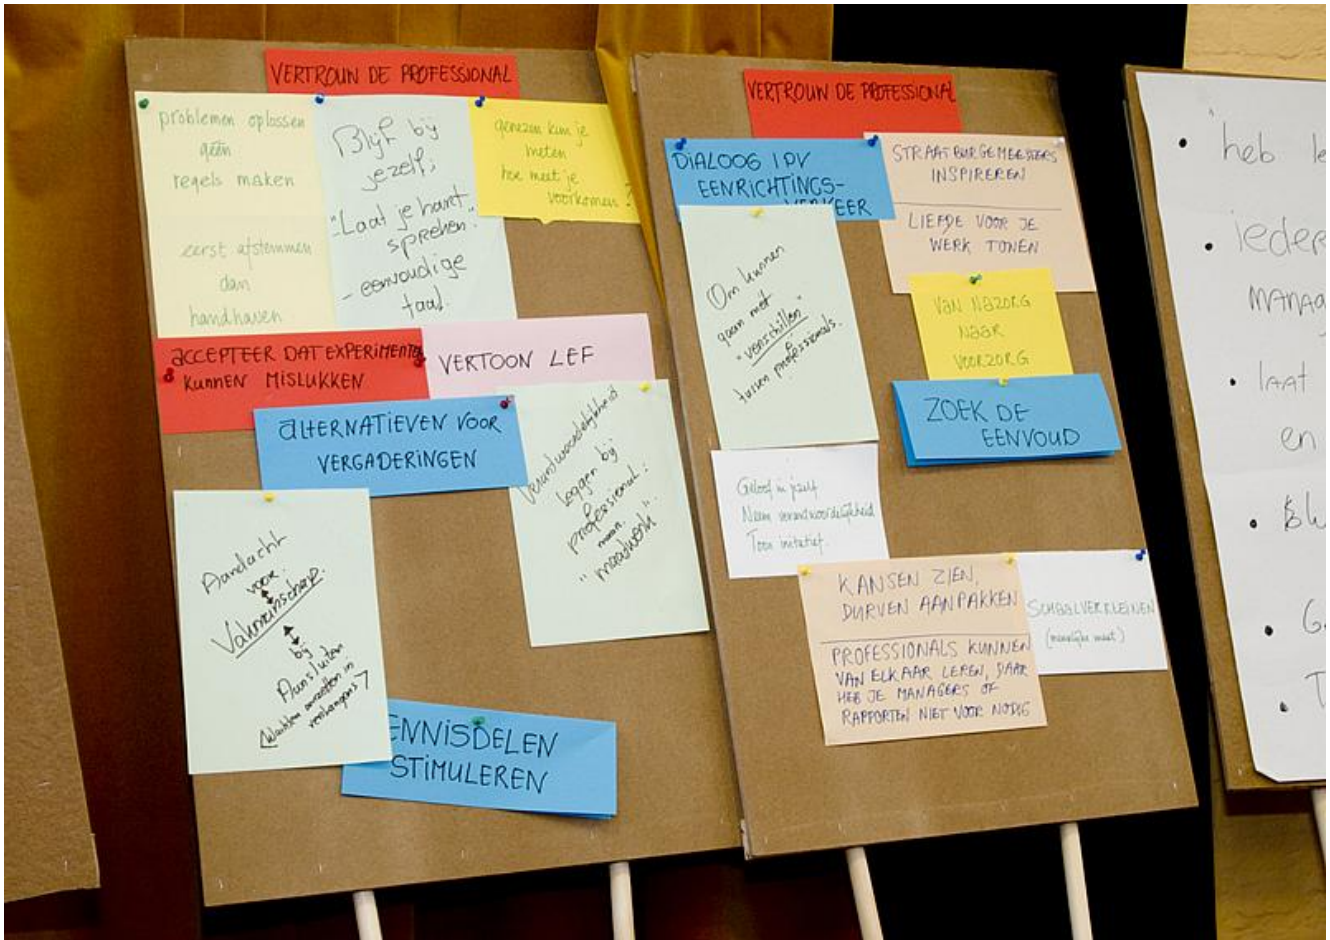 VERTROUN DE PROFESSIONAL
problemen oplossen
géén
regels maken
eerst afstemmen
dan
handhaven
Blijf bij
jezelf;
-"Laat je hart
spreken."
- eenvoudige
taal.
genezen kun je
meten
hoe meet je
voorkomen?
ACCEPTEER DAT EXPERIMENTEN
KUNNEN MISLUKKEN
VERTOON LEF
ALTERNATIEVEN VOOR
VERGADERINGEN
Verantwoordelijkheid
leggen bij
professional:
"maatwerk".
Aandacht
voor
Vakmanschap.
bij
Aansluiten
ENNISDELEN
STIMULEREN
VERTROUN DE PROFESSIONAL
DIALOOG IPV
EENRICHTINGS-
VERKEER
STRAATBURGEMEESTERS
INSPIREREN
LIEFDE VOOR JE
WERK TONEN
Om kunnen
gaan met
"verschillen"
tussen professionals.
VAN NAZORG
NAAR
VOORZORG
ZOEK DE
EENVOUD
Geloof in jezelf
Neem verantwoordelijkheid
Toon initiatief.
KANSEN ZIEN,
DURVEN AANPAKKEN
PROFESSIONALS KUNNEN
VAN ELKAAR LEREN, DAAR
HEB JE MANAGERS OF
RAPPORTEN NIET VOOR NODIG
SCHAALVERKLEINEN
(menselijke maat)
• heb le
• ieder
mana
• laat
en
•
• G
• T